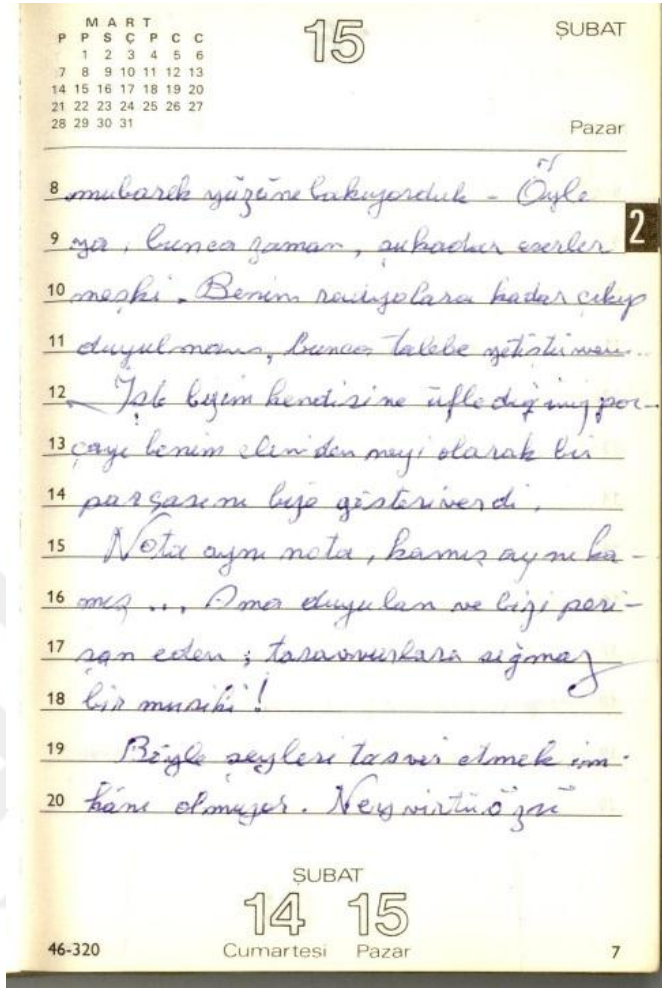 MART
P P S Ç P C C
1 2 3 4 5 6
7 8 9 10 11 12 13
14 15 16 17 18 19 20
21 22 23 24 25 26 27
28 29 30 31
15
ŞUBAT
Pazar
2
8 mubarek yüzüne bakıyorduk - Öyle
9 ya, bunca zaman, şukadar eserler
10 meşki. Benim radyolara kadar çıkıp
11 duyulmam, bunca talebe yetiştirmem..
12 İşte bizim kendisine üflediğimiz par-
13 çayı benim elimden neyi olarak bir
14 parçasını bize gösteriverdi.
15 Nota aynı nota, kamış aynı ka-
16 mış ... Ama duyulan ve bizi peri-
17 şan eden ; tasavvurlara sığmaz
18 bir musiki !
19 Böyle şeyleri tasvir etmek im-
20 kânı olmuyor. Ney virtüözü
ŞUBAT
14 15
Cumartesi Pazar
46-320
7